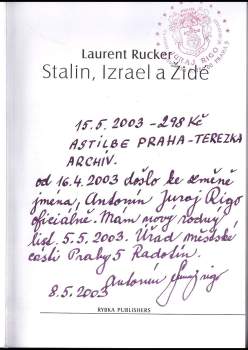 JURAJ RIGO
Laurent Rucker
Stalin, Izrael a Židé
15.5.2003 -298 Kč
ASTILBE PRAHA-TEREZKA
ARCHÍV.
od 16.4.2003 došlo ke změně
jmena, Antonín Juraj Rigo
oficiálně. Mam nový rodný
list. 5.5.2003. Úřad městské
časti Prahy 5 Radotín.
Antonín Juraj Rigo
8.5.2003
RYBKA PUBLISHERS